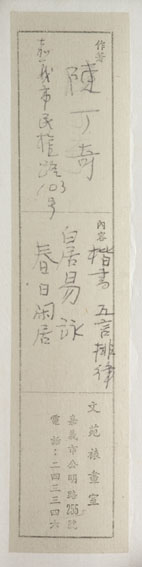 作者
陳丁奇
嘉義市民權路103號
內容
楷書 五言排律
白居易詠
春日閑居
文苑裱畫室
嘉義市公明路255號
電話：二四三三四六